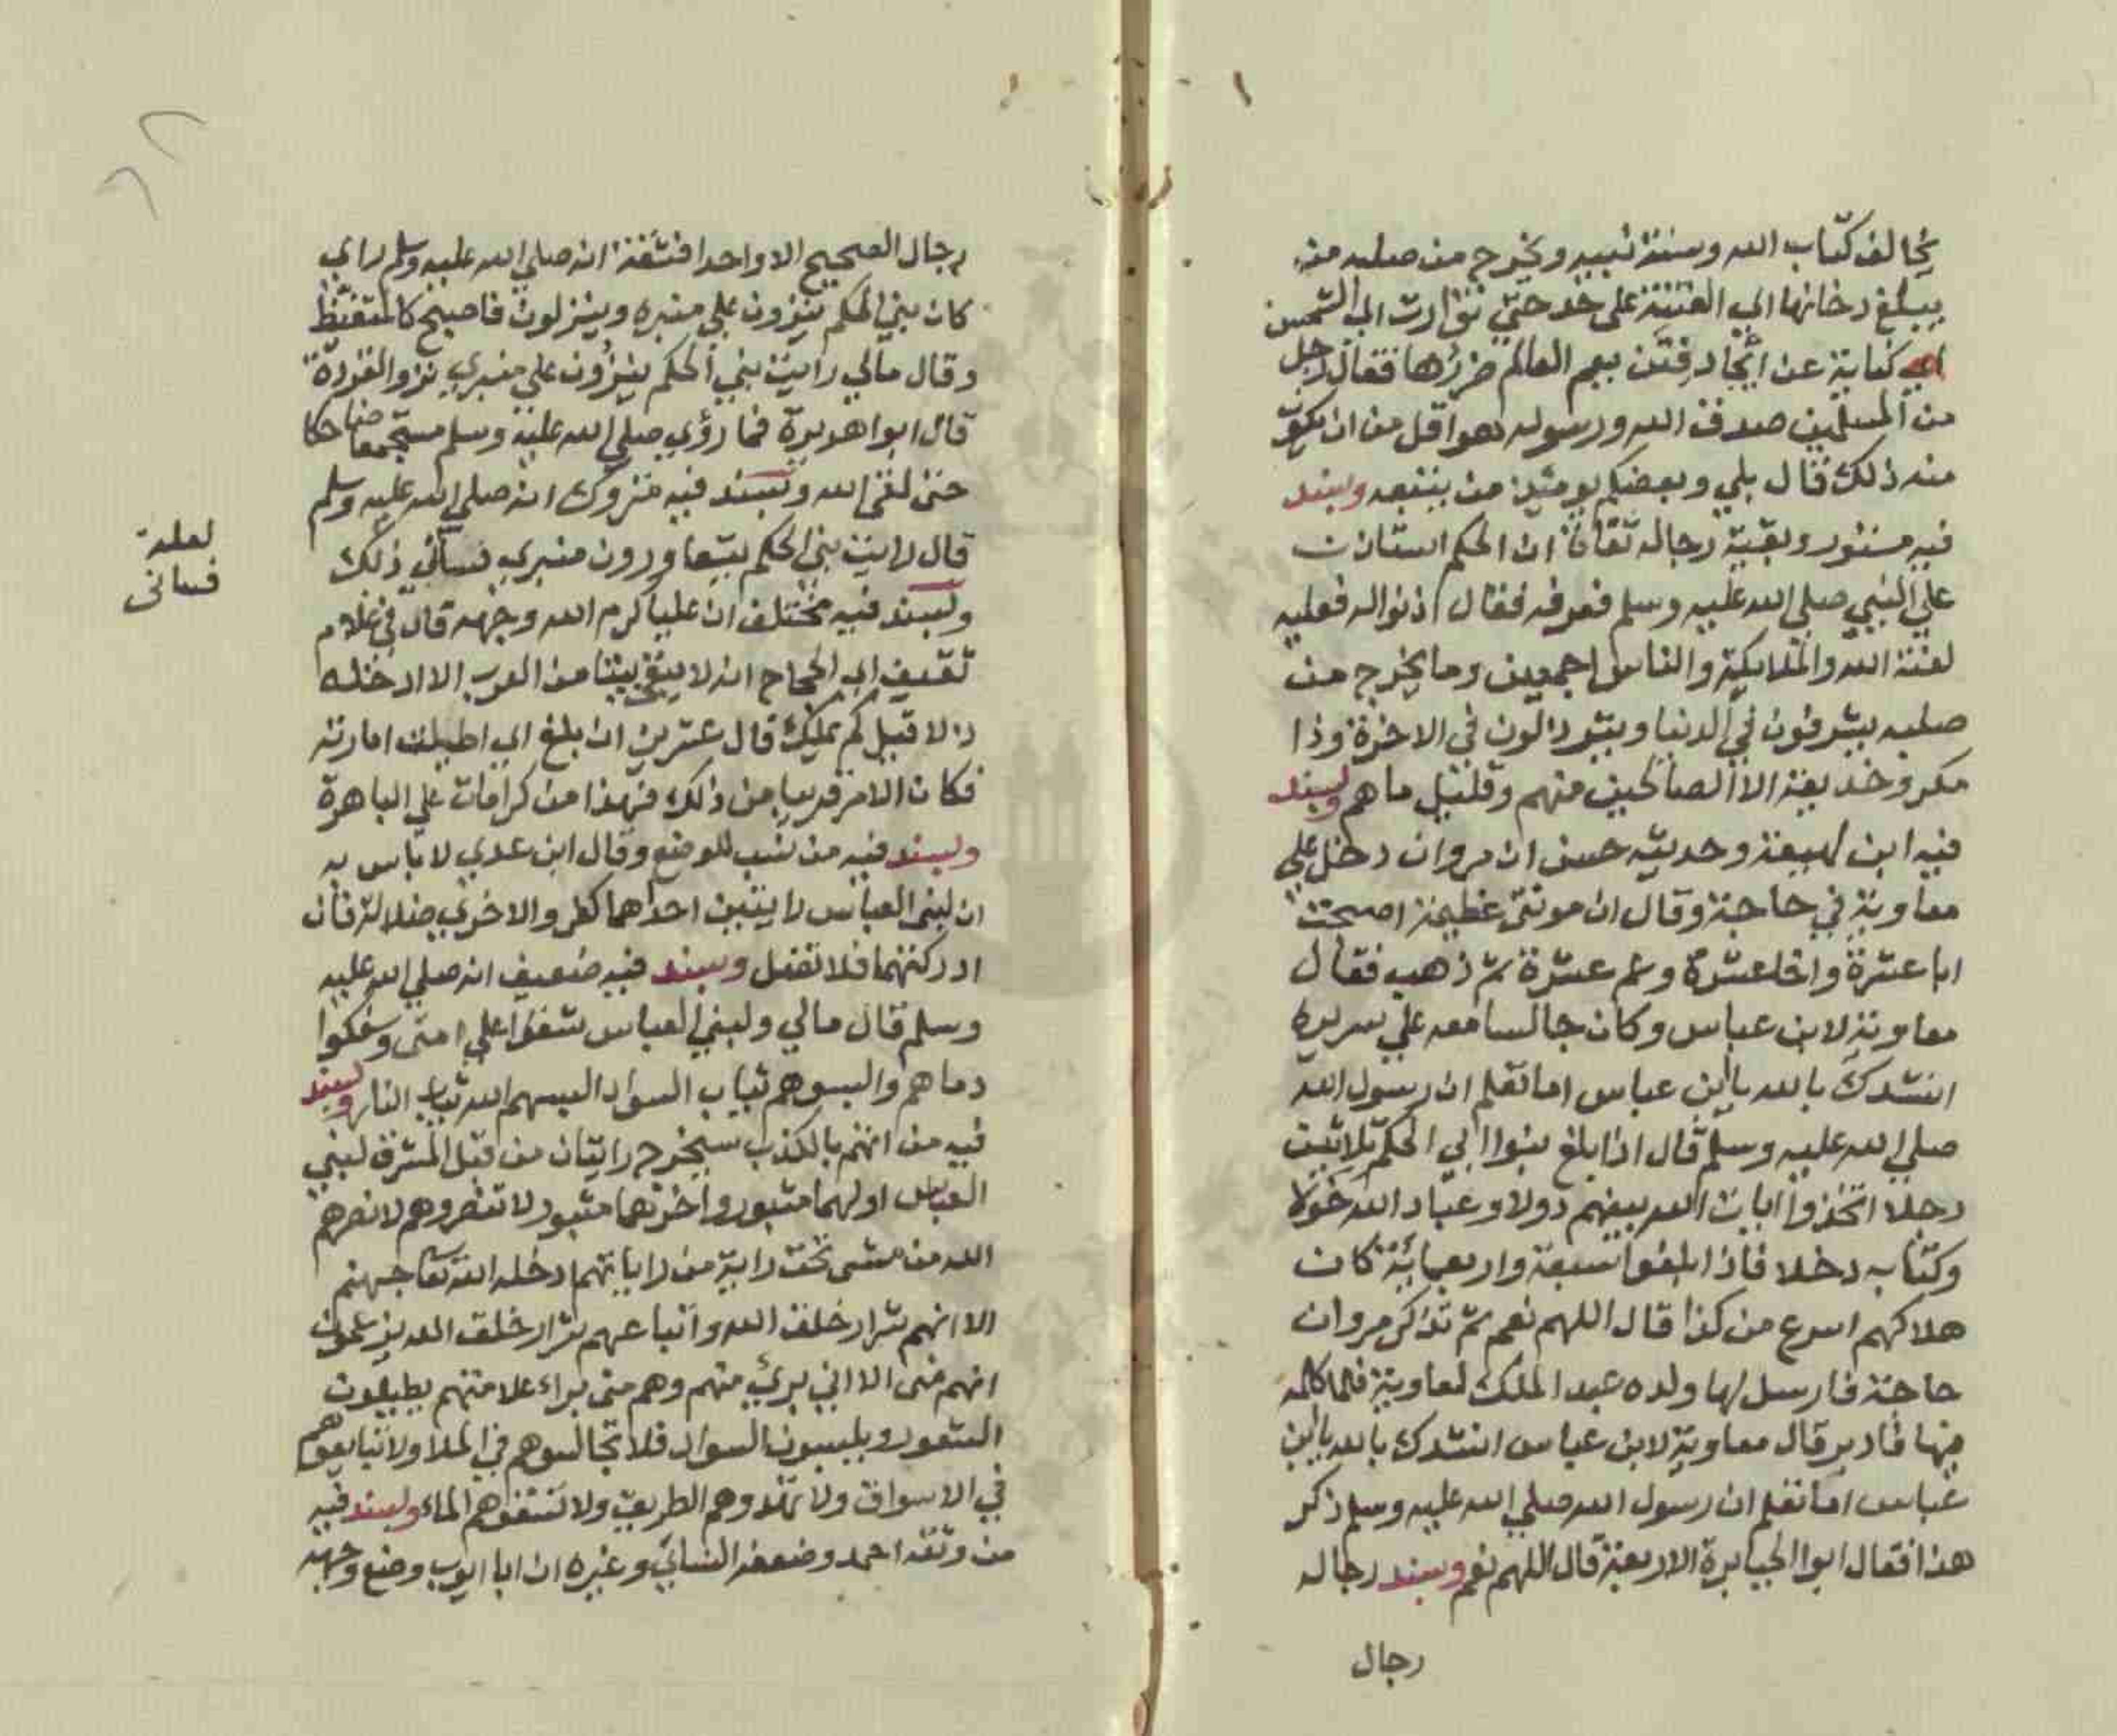 يخالف كتاب الله وسنة نبيه ويخرج من صلبه من
يبلغ دخانها الي الفتنة على حد حتي توارت الي الشمس
اي كناية عن اتحاد فتن يعم العالم ضررها فقال رجل
من المسلمين صدق الله ورسوله هو اقل من ان يكون
منه ذلك قال بلي وبعضكم يومئذ من يتبعه وبسند
فيه مستور وبقية رجاله ثقات ان الحكم استاذن
علي النبي صلي الله عليه وسلم فعرفه فقال اذنوا له فعليه
لعنة الله والملايكة والناس اجمعين وما يخرج من
صلبه يشرفون في الدنيا ويترذلون في الاخرة وذا
مكر وخديعة الا الصالحين منهم وقليل ما هم وبسند
فيه ابن لهيعة وحديثه حسن ان مروان دخل علي
معاوية في حاجة وقال ان مونتى عظيمة اصبحت
ابا عشرة واخا عشرة وعم عشرة ثم ذهب فقال
معاوية لابن عباس وكان جالسا معه علي سريره
انشدك بالله يا ابن عباس اما تعلم ان رسول الله
صلي الله عليه وسلم قال اذا بلغ بنوا ابي الحكم ثلاثين
رجلا اتخذوا ايات الله بينهم دولا وعباد الله خولا
وكتابه دخلا فاذا بلغوا سبعة واربعماية كان
هلاكهم اسرع من كذا قال اللهم نعم ثم تذاكر مروان
حاجة فارسل لها ولده عبد الملك لمعاوية فلما كلمه
فيها فادبر قال معاوية لابن عباس انشدك بالله يا ابن
عباس اما تعلم ان رسول الله صلي الله عليه وسلم ذكر
هذا فقال ابوا الجبابرة الاربعة قال اللهم نعم وبسند رجاله
رجال
رجال الصحيح الا واحدا فثقة انه صلي الله عليه وسلم راي
كان بني الحكم ينزون علي منبره وينزلون فاصبح كالمتغيظ
وقال مالي رايت بني الحكم ينزون علي منبري نزو القردة
قال ابوا هريرة فما رؤي صلي الله عليه وسلم مستجمعا ضاحكا
حتى لقى الله وبسند فيه متروك انه صلي الله عليه وسلم
قال رايت بني الحكم يتعاورون منبري فساني ذلك
وبسند فيه مختلف ان عليا كرم الله وجهه قال في غلام
ثقيف اي الحجاج انه لا يبقى بيتا من العرب الا ادخله
ذلا قيل كم يملك قال عشرين ان بلغ اي اطيلت امارته
فكان الامر قريبا من ذلك فهذا من كرامات علي الباهرة
وبسند فيه من نسب للوضع وقال ابن عدي لا باس به
ان لبني العباس رايتين احداهما كفر والاخري ضلالة فان
ادركتهما فلا تضل وبسند فيه ضعيف انه صلي الله عليه
وسلم قال مالي ولبني العباس شقوا علي امتى وسفكوا
دماهم والبسوهم ثياب السواد البسهم الله ثياب النار وبسند
فيه من اتهم بالكذب سيخرج رايتان من قبل المشرق لبني
العباس اولهما مثبور واخرهما مثبور لا تنصروهم لا نصرهم
الله من مشى تحت راية من راياتهم ادخله الله تعا جهنم
الا انهم شرار خلق الله واتباعهم شرار خلق الله يزعمون
انهم منى الا اني بريء منهم وهم منى براء علامتهم يطيلون
الشعور ويلبسون السواد فلا تجالسوهم في الملا ولا تبايعوهم
في الاسواق ولا تهدوهم الطريق ولا تسقوهم الماء وبسند فيه
من وثقه احمد وضعفه النسائي وغيره ان ابا ايوب وضع وجهه
لعله
فساني